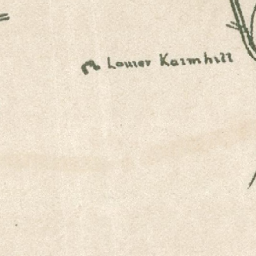 Lower Kaimhill